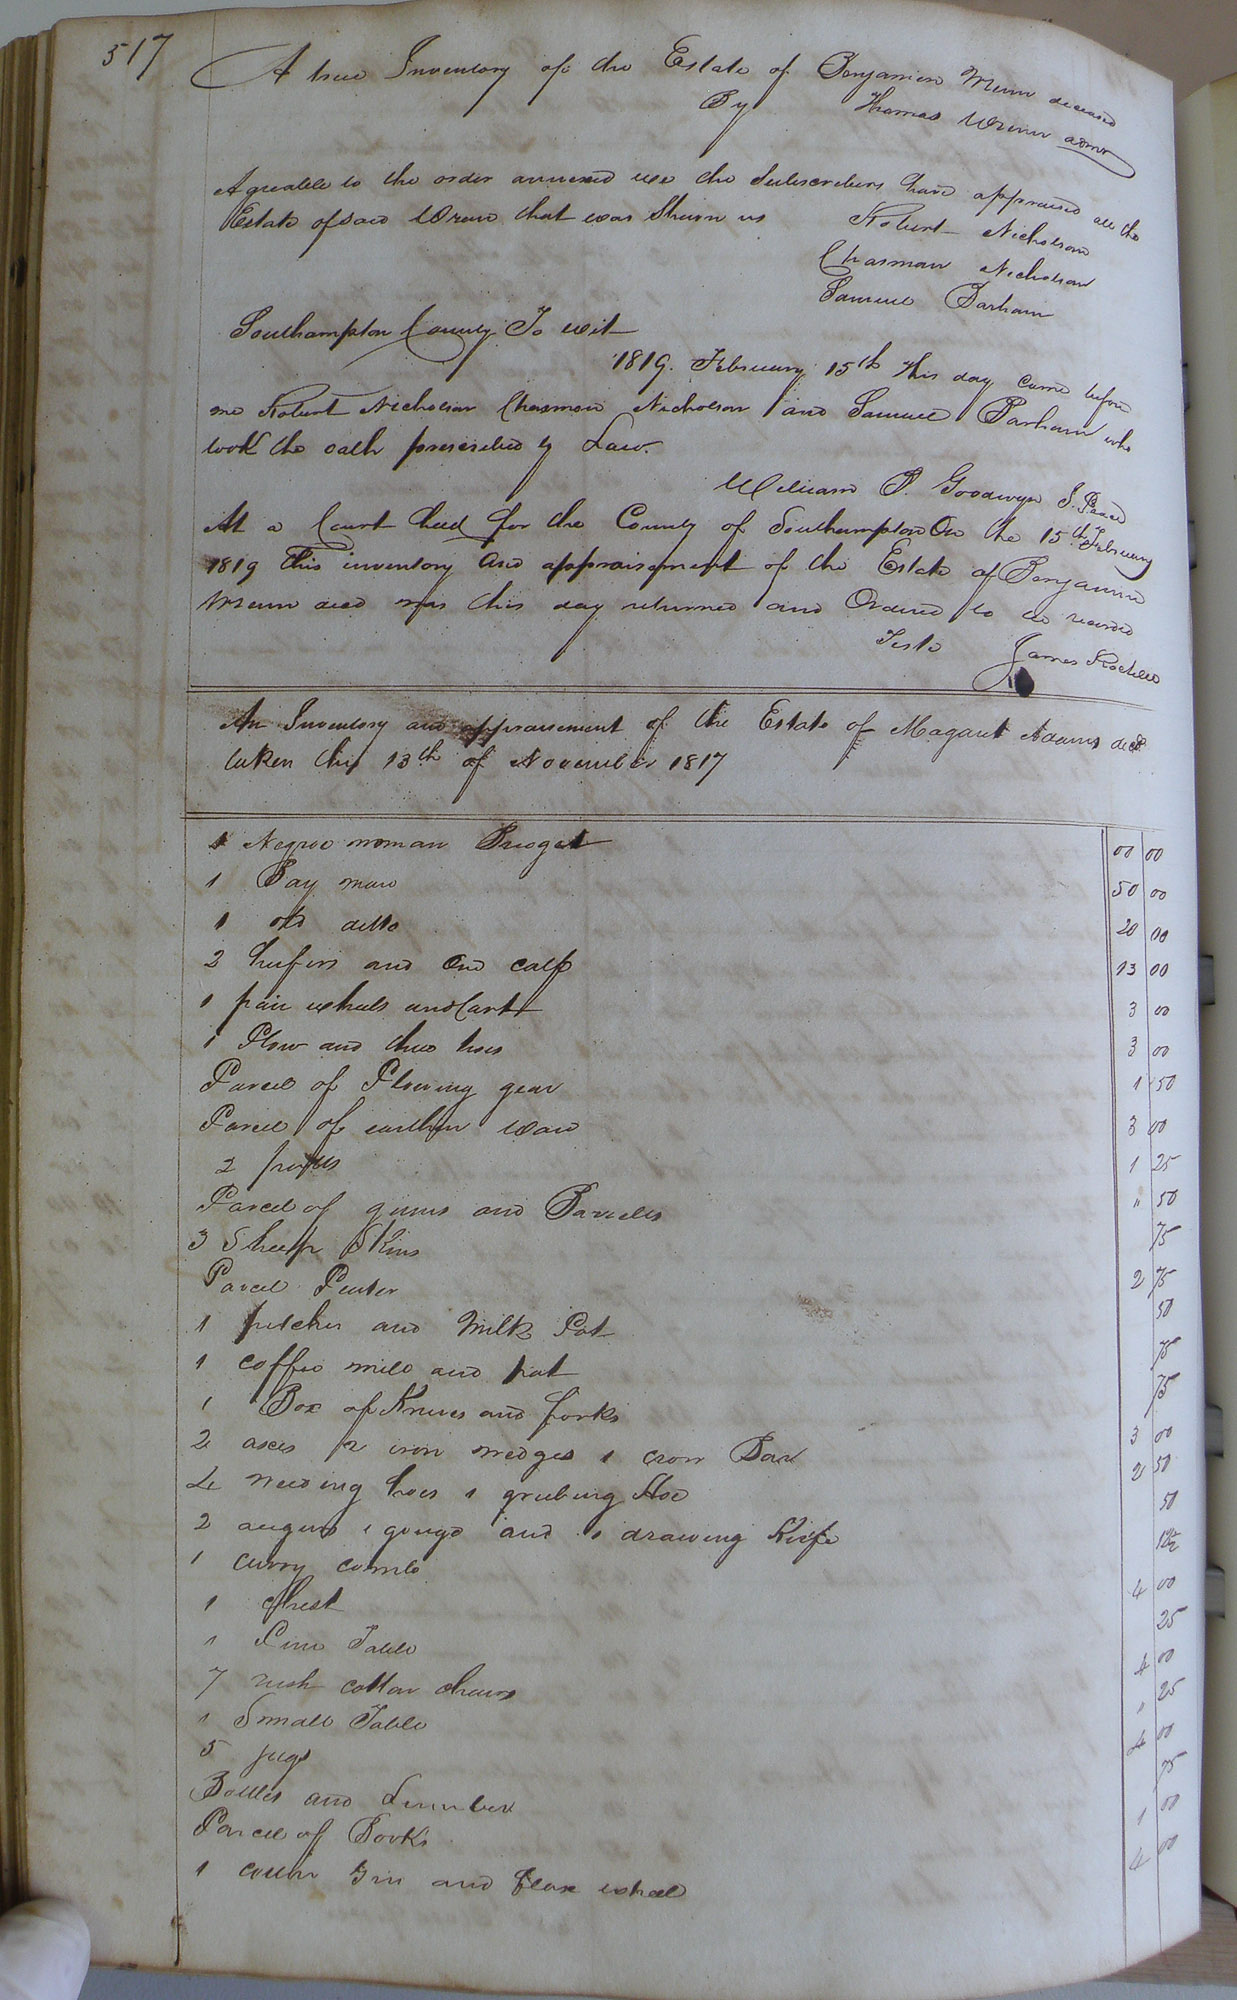 517
A true Inventory of the Estate of Benjamin Wrenn deceased
By Thomas Wrenn admr
Agreeable to the order annexed we the Subscribers have appraised all the
Estate of said Wrenn that was Shewn us Robert Nicholson
Chasman Nicholson
Samuel Parham
Southampton County To wit
1819. February 15th this day came before
me Robert Nicholson Chasman Nicholson and Samuel Parham who
took the oath prescribed by Law.
William B. Goodwyn J. Peace
At a Court held for the County of Southampton On the 15th February
1819 This inventory and appraisement of the Estate of Benjamin
Wrenn decd was this day returned and Ordered to be recorded
Teste James Rochelle
An Inventory and appraisement of the Estate of Magaret Adams decd
taken this 13th of November 1817
1 Negroe woman Bridget 00 00
1 Bay mare 50 00
1 old ditto 20 00
2 heifers and One calf 13 00
1 pair wheels and Cart 3 00
1 Plow and three hoes 3 00
Parcel of Plowing gear 1 50
Parcel of earthen ware 3 00
2 1 25
Parcel of gums and Barrells " 50
3 Sheep Skins 75
Parcel Peuter 2 75
1 pitcher and Milk Pot 50
1 coffee mill and pot 75
1 Box of Knives and forks 75
2 axes 2 iron wedges 1 crow Bar 3 00
4 weeding hoes 1 grubing Hoe 2 50
2 augurs 1 gouge and 1 drawing Knife 50
1 curry comb 12½
1 Chest 4 00
1 Pine Table 25
7 rush bottom chairs 4 00
1 Small Table " 25
5 jugs 4 00
Bottles and Lumber 75
Parcel of Books 1 00
1 cotton Gin and flax wheel 4 00